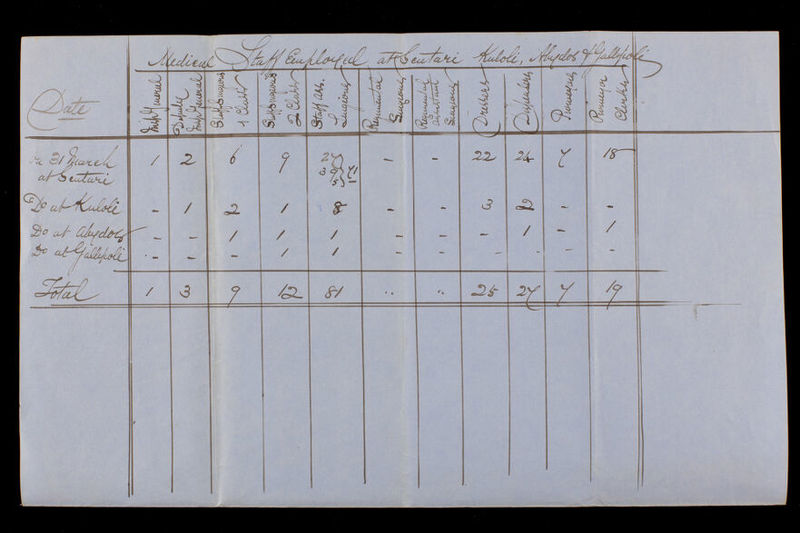 Medical Staff Employed at Scutari Kuloli, Abydos & Gallipoli
Date | Insp General | Deputy Insp General | Staff Surgeons 1 Class | Staff Surgeons 2 Class | Staff Ass. Surgeons | Regimental Surgeons | Regimental Assistant Surgeons | Dressers | Dispensers | Purveyors | Purveyor Clerks
On 31 March at Scutari | 1 | 2 | 6 | 9 | 71 | - | - | 22 | 24 | 7 | 18
Do at Kuloli | - | 1 | 2 | 1 | 8 | - | - | 3 | 2 | - | -
Do at Abydos | - | - | 1 | 1 | 1 | - | - | - | 1 | - | 1
Do at Gallipoli | - | - | - | 1 | 1 | - | - | - | - | - | -
Total | 1 | 3 | 9 | 12 | 81 | " | " | 25 | 27 | 7 | 19